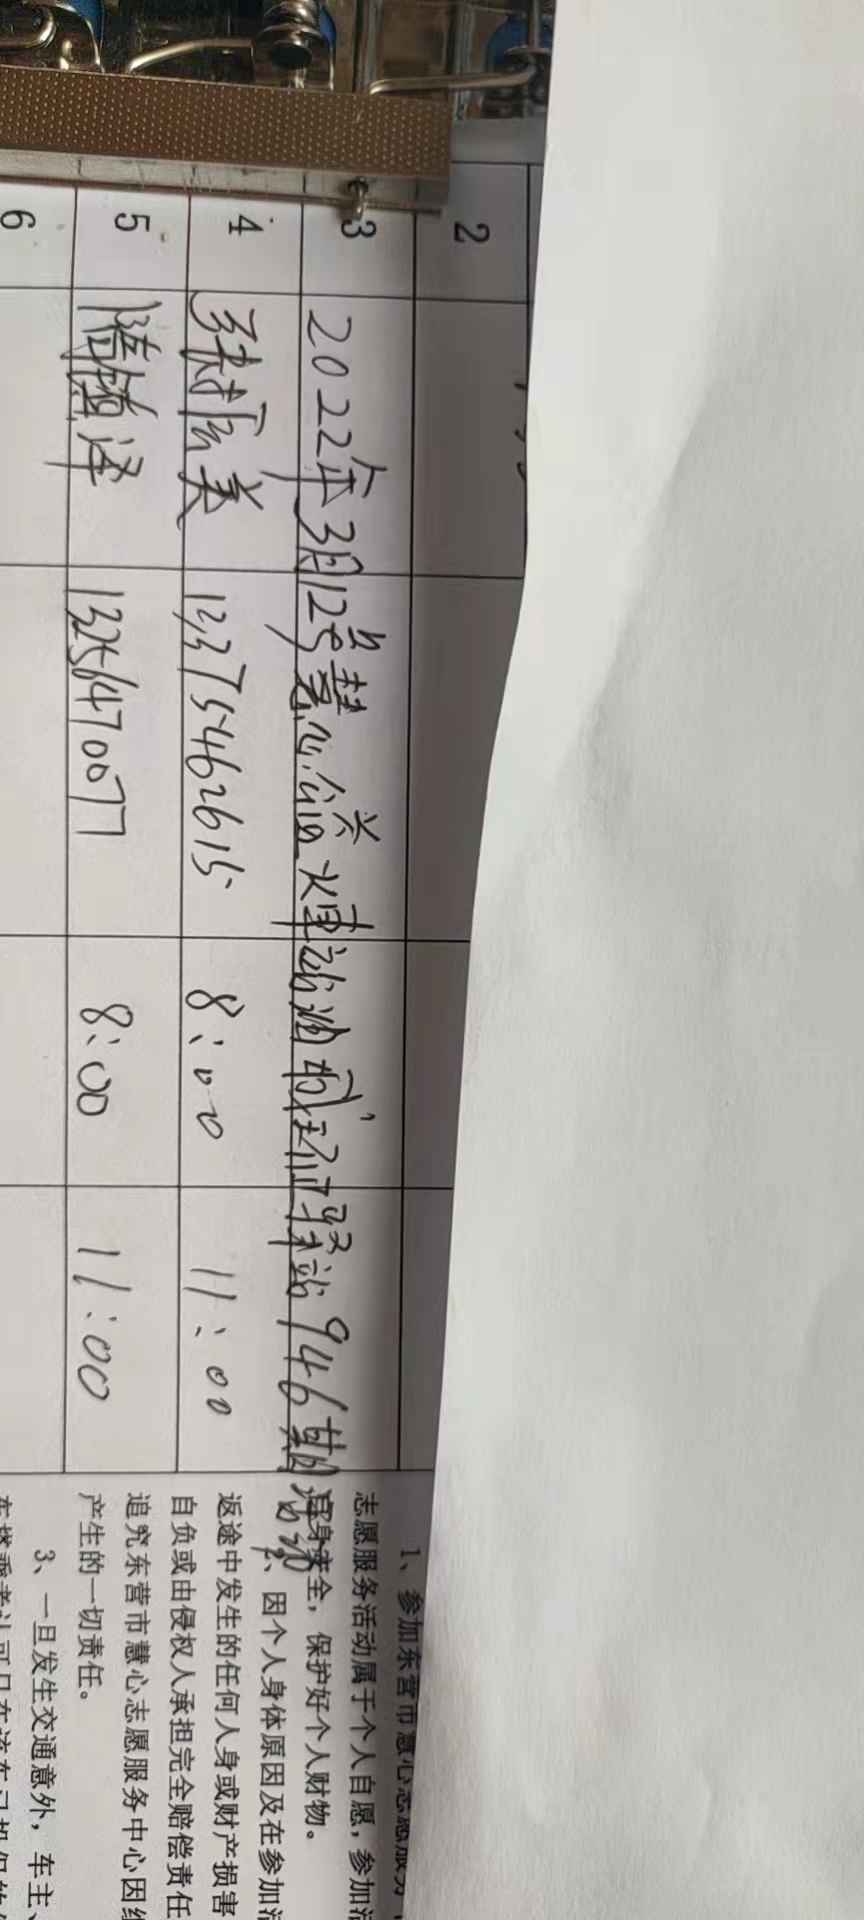 2
3
2022年3月12号慧心公益 946期活动
4 张振美 13375462615 8:00 11:00
5 隋镇泽 13256470077 8:00 11:00
6
1、参加东营市慧心志愿服务
志愿服务活动属于个人自愿，参加活
身安全，保护好个人财物。
2、因个人身体原因及在参加活
返途中发生的任何人身或财产损害
自负或由侵权人承担完全赔偿责任
追究东营市慧心志愿服务中心因组
产生的一切责任。
3、一旦发生交通意外，车主、